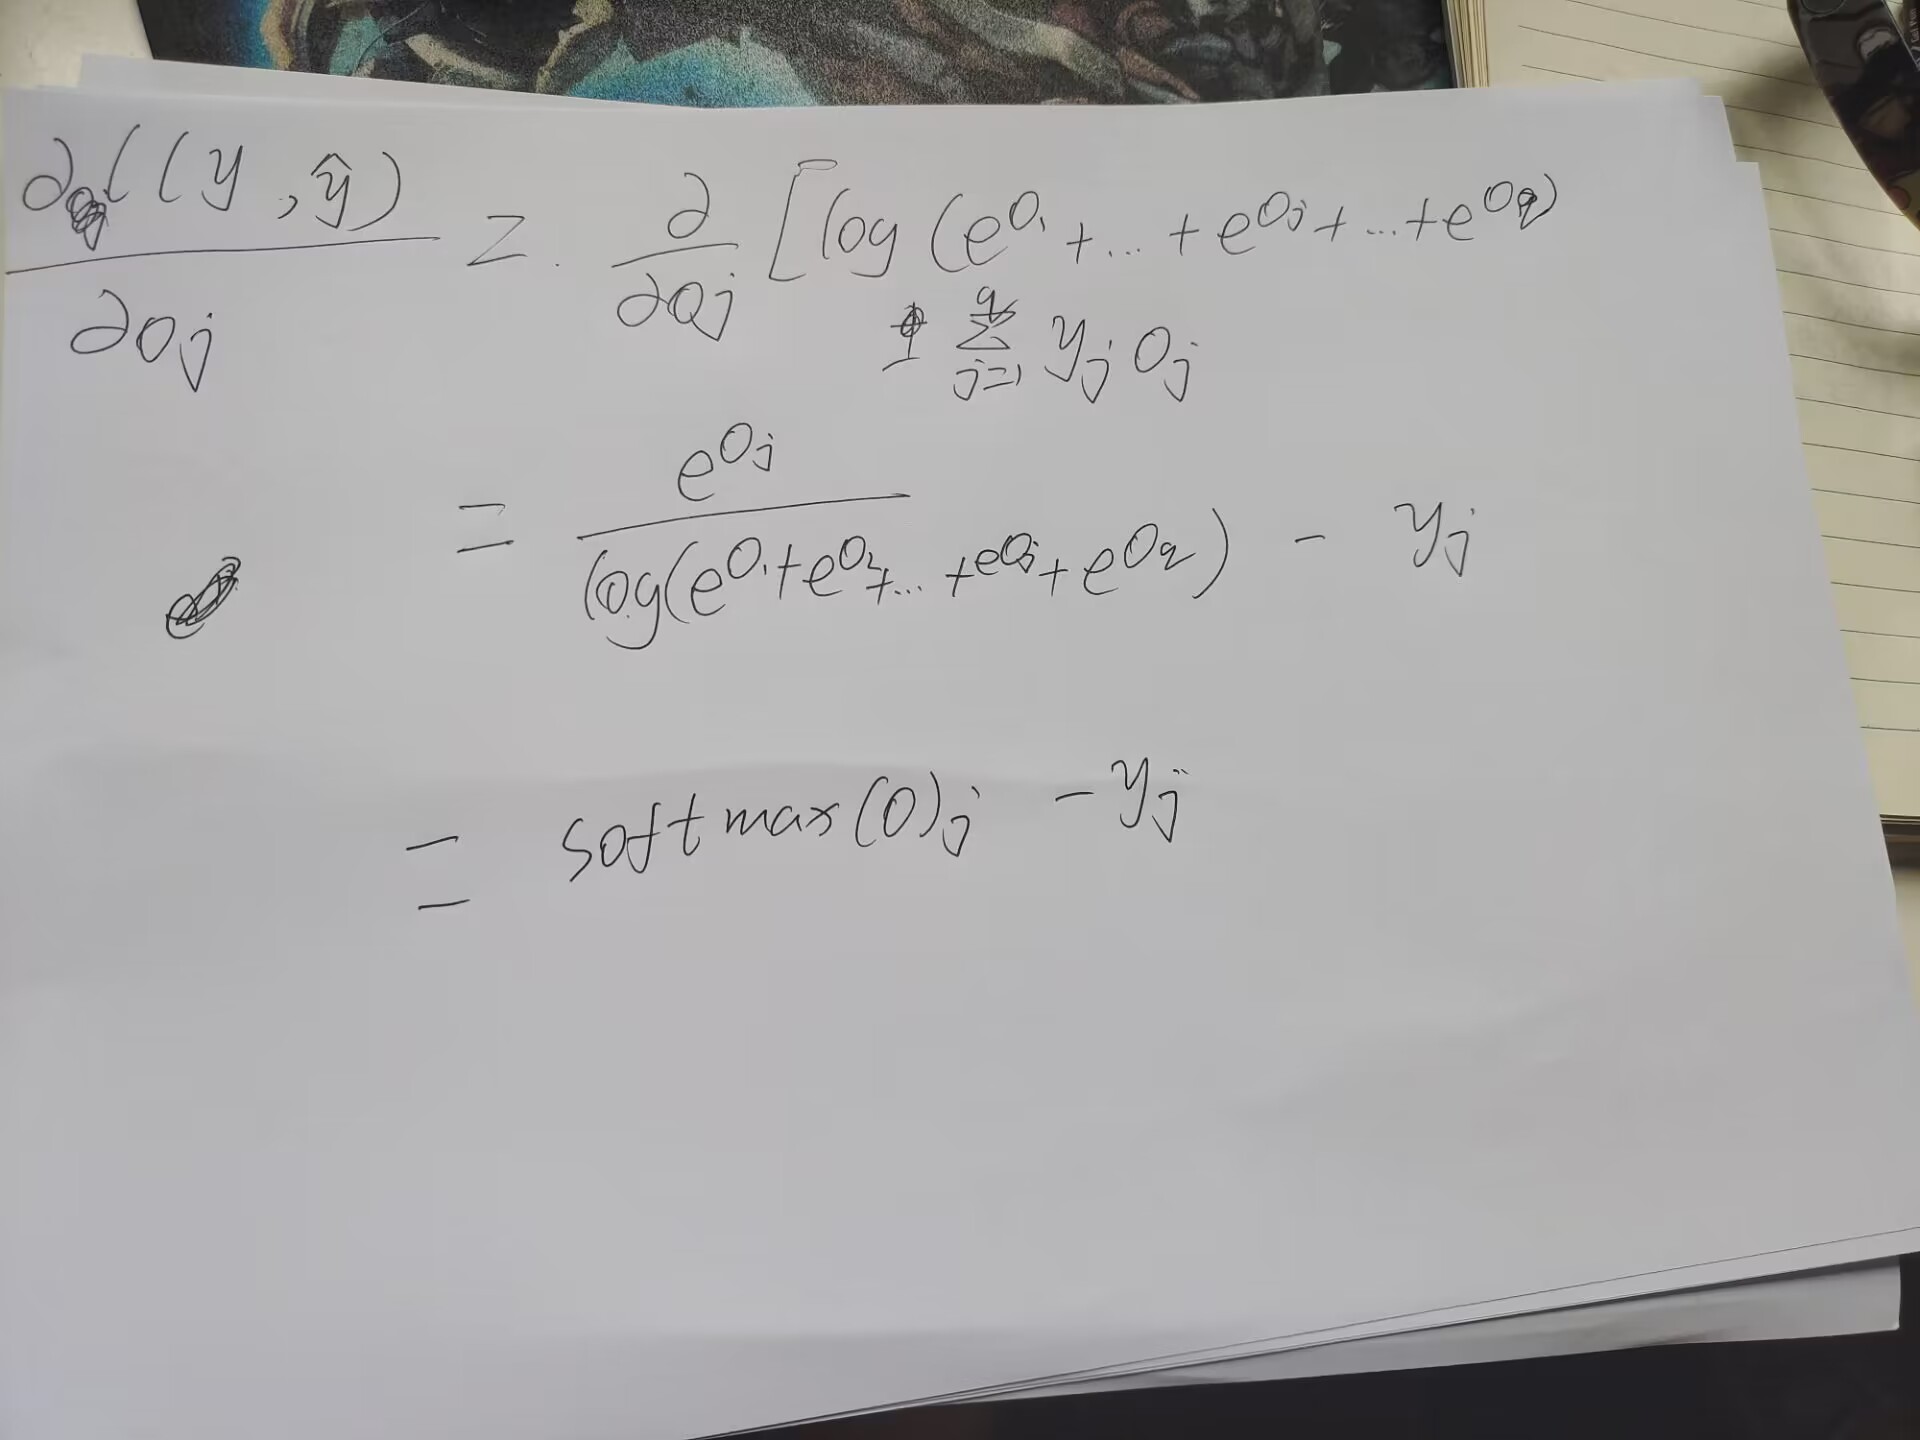 ∂l(y, ŷ) / ∂oj = ∂/∂oj [log(e^{o1} + ... + e^{oj} + ... + e^{oq})
Σ_{j=1}^{q} yj oj
= e^{oj} / log(e^{o1} + e^{o2} + ... + e^{oj} + e^{oq}) - yj
= softmax(o)j - yj